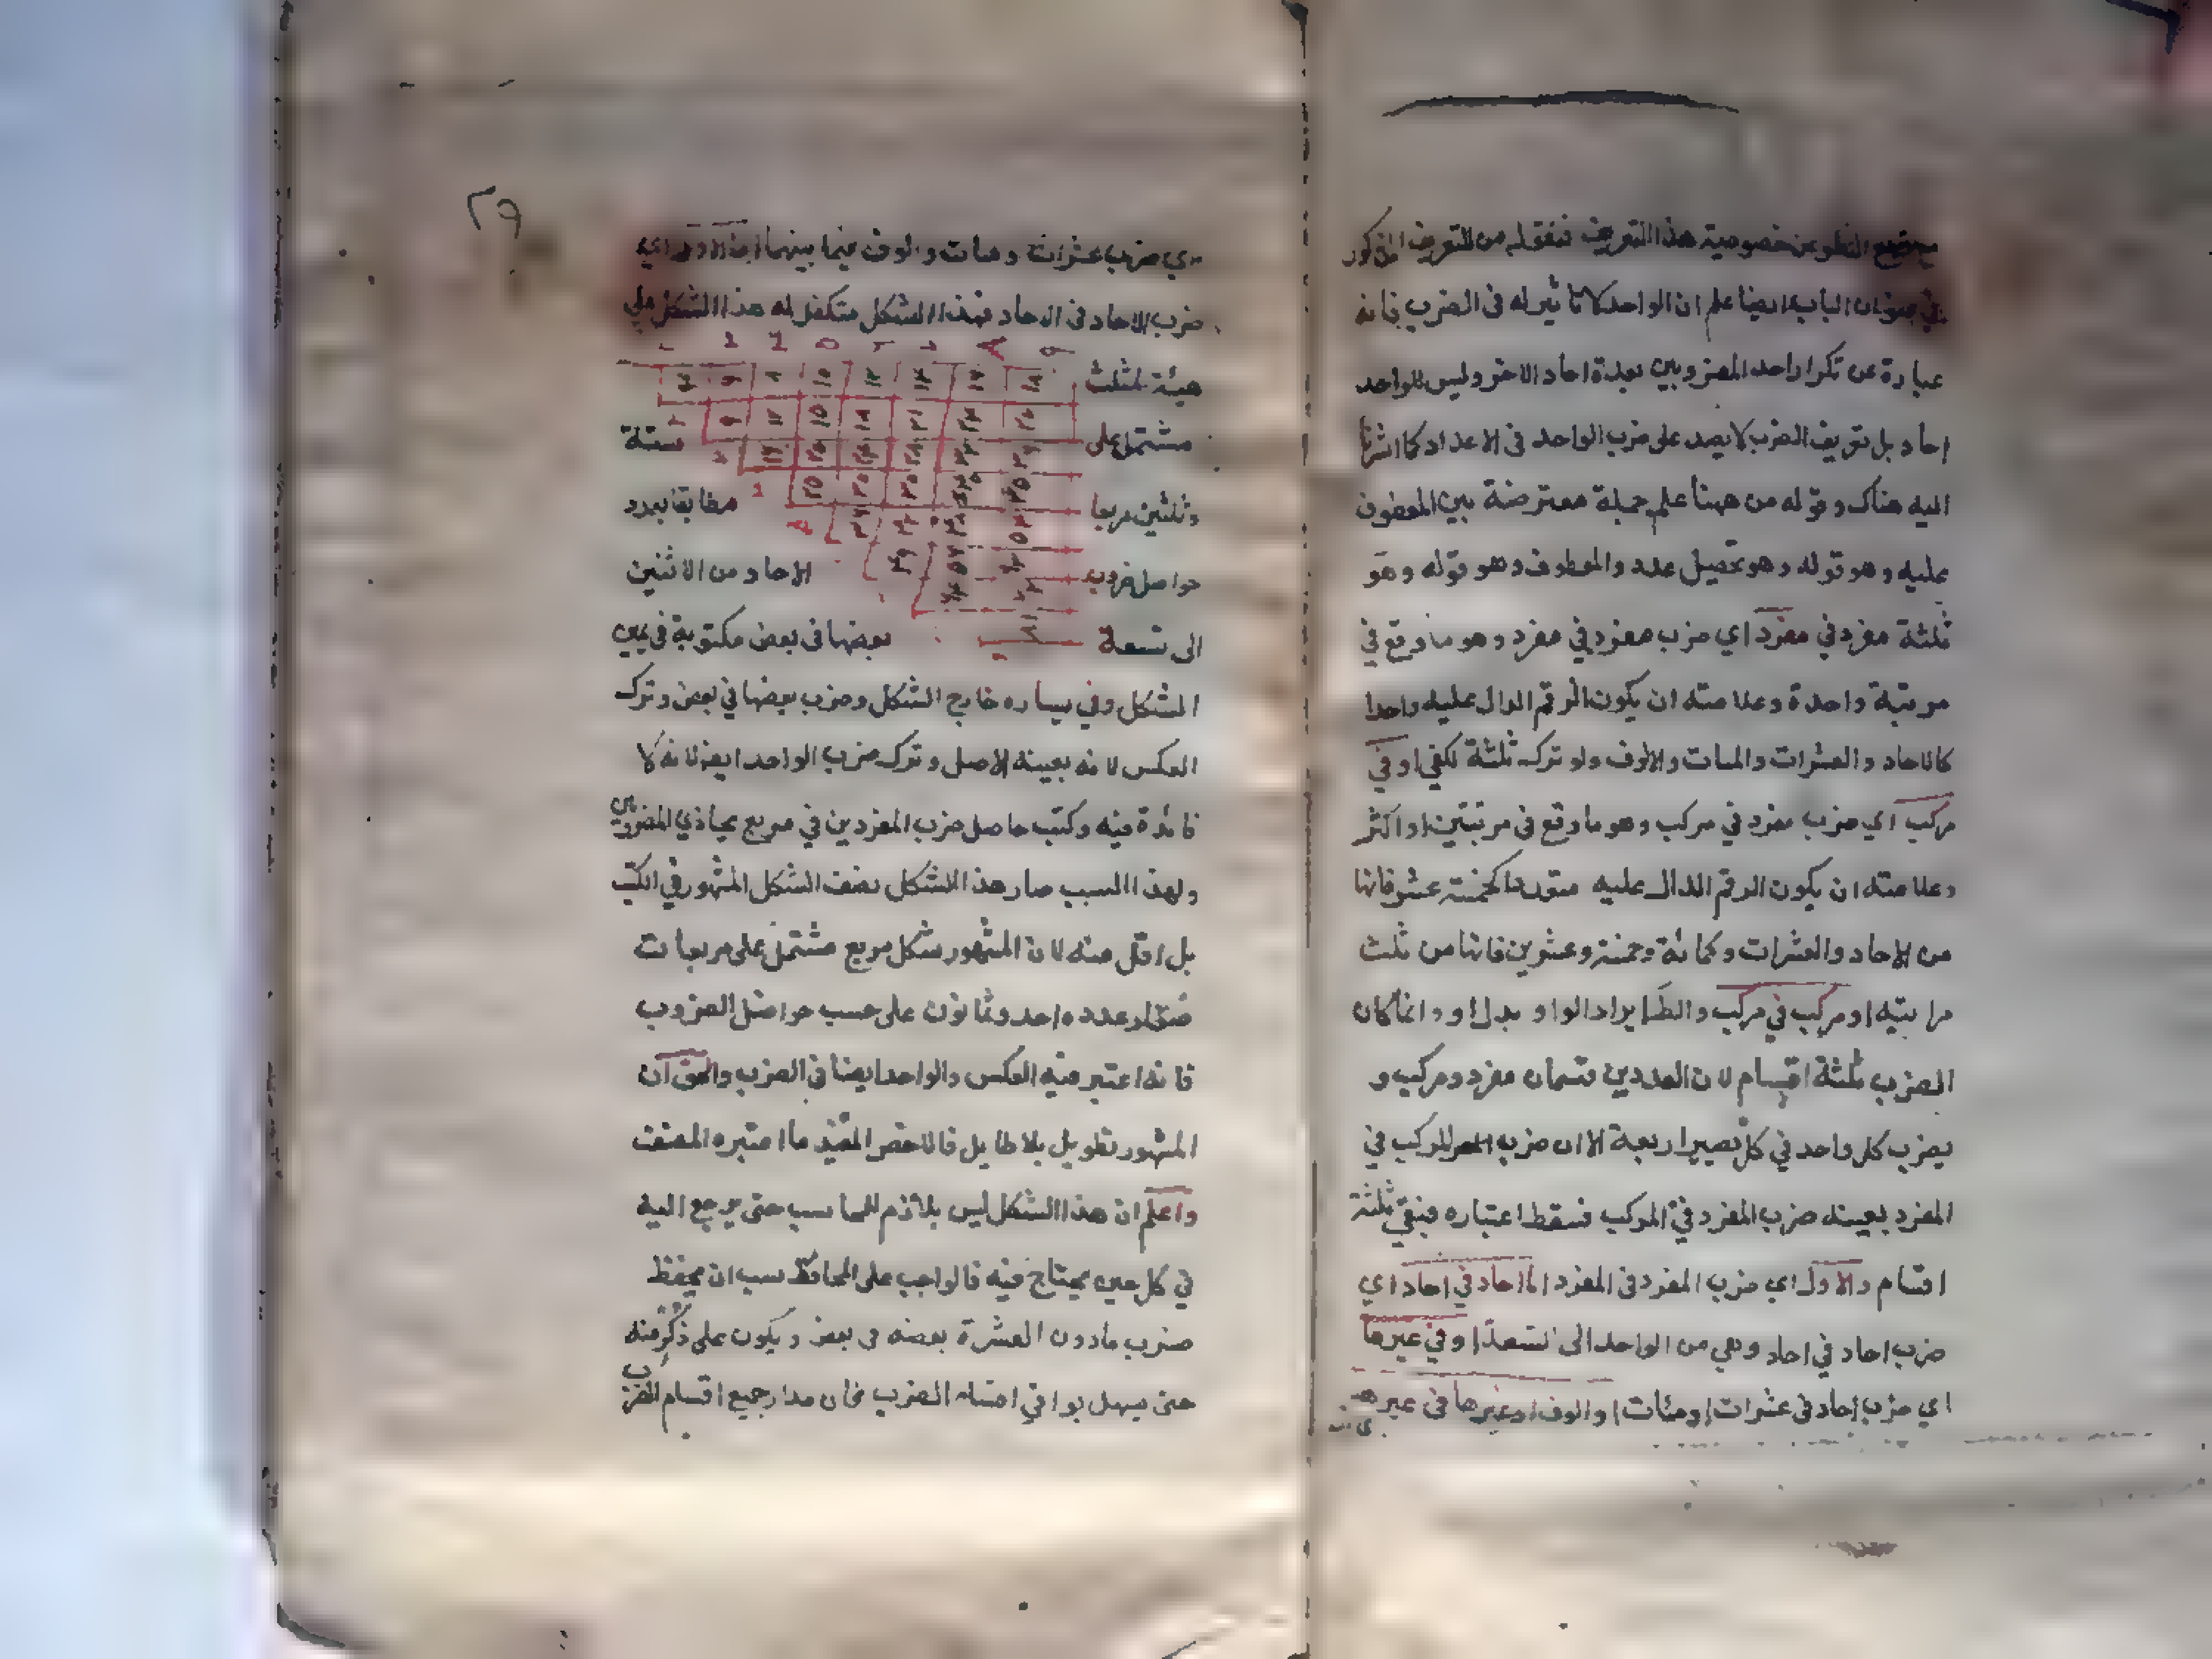 مع قطع النظر عن خصوصية هذا التعريف فقوله من التعريف المذكور
في عنوان الباب ايضا علم ان الواحد لا تاثير له في الضرب فانه
عبارة عن تكرار احد المضروبين بعدة احاد الاخر وليس للواحد
احاد بل تعريف الضرب لا يصدق على ضرب الواحد في الاعداد كما اشرنا
اليه هناك وقوله من ههنا علم جملة معترضة بين المعطوف
عليه وهو قوله وهو تحصيل عدد والمعطوف وهو قوله وهو
ثلثة مفرد في مفرد اي ضرب مفرد في مفرد وهو ما وقع في
مرتبة واحدة وعلامته ان يكون الرقم الدال عليه واحدا
كالاحاد والعشرات والمات والالوف ولو ترك ثلثة لكفى او في
مركب اي ضرب مفرد في مركب وهو ما وقع في مرتبتين او اكثر
وعلامته ان يكون الرقم الدال عليه متعددا كخمسة عشر فانها
من الاحاد والعشرات وكمائة وخمسة وعشرين فانها من ثلث
مراتبه او مركب في مركب والظ ايراد الواو بدل او وانما كان
الضرب ثلثة اقسام لان العددين قسمان مفرد ومركب و
بضرب كل واحد في كل تصير اربعة الا ان ضرب المركب في
المفرد بعينه ضرب المفرد في المركب فسقط اعتباره فبقي ثلثة
اقسام والاول اي ضرب المفرد في المفرد اما احاد في احاد اي
ضرب احاد في احاد وهي من الواحد الى تسعة او في غيرها
اي ضرب احاد في عشرات او مئات او الوف او غيرها في غيرها
٢٩
اي ضرب عشرات ومات والوف فيما بينهما اما الاول اي
ضرب الاحاد في الاحاد فهذا الشكل متكفل له هذا الشكل على
هيئة مثلث
مشتمل على ستة
وثلثين مربعا مطابقا بعدد
حواصل ضروب الاحاد من الاثنين
الى تسعة بعضها في بعض مكتوبة في يمين
الشكل وفي يساره خارج الشكل وضرب بعضها في بعض وترك
العكس لانه بعينه الاصل وترك ضرب الواحد ايضا لانه لا
فائدة فيه وكتب حاصل ضرب المفردين في مربع يحاذي المضروبين
ولهذا السبب صار هذا الشكل نصف الشكل المشهور في الكتب
بل اقل منه لان المشهور شكل مربع مشتمل على مربعات
صغار عدده احد وثمانون على حسب حواصل الضروب
فانه اعتبر فيه العكس والواحد ايضا في الضرب والحق ان
المشهور تطويل بلا طايل فالاخصر المفيد ما اعتبره المصنف
واعلم ان هذا الشكل ليس بلازم للمحاسب حتى يرجع اليه
في كل حين يحتاج فيه فالواجب على المحاسب ان يحفظ
ضرب مادون العشرة بعضه في بعض ويكون على ذكر منه
حتى يسهل بواقي اقسام الضرب فان مدار جميع اقسام الضرب